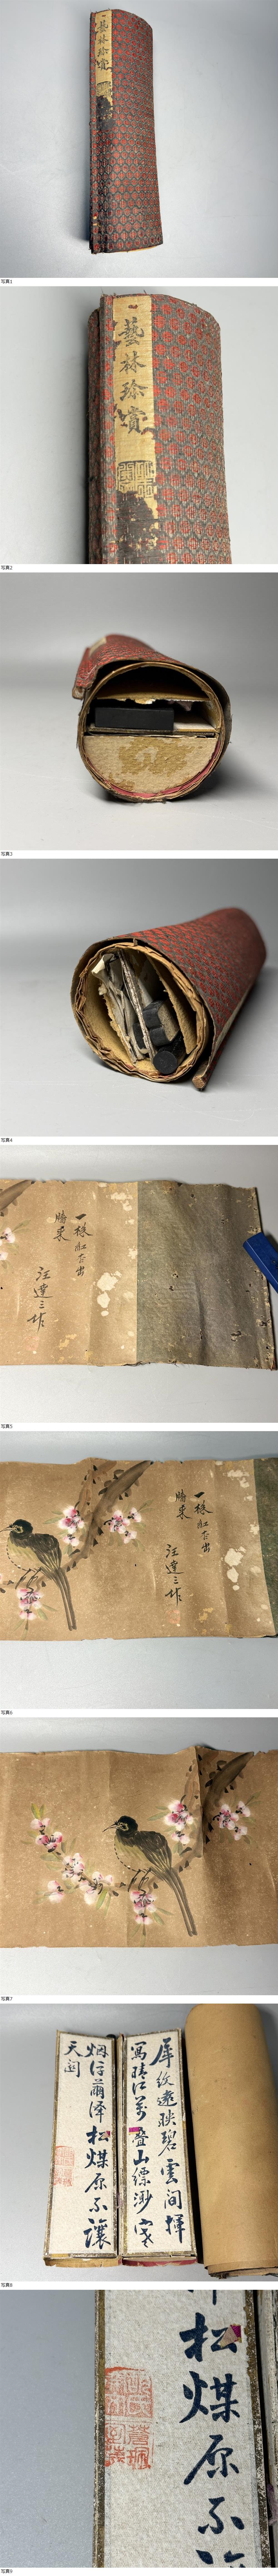 藝林珍賞
写真1
藝林珍賞
写真2
写真3
写真4
一枝紅杏出
牆來
汪達三作
写真5
一枝紅杏出
牆來
汪達三作
写真6
写真7
犀紋遠映碧雲間揮
寫晴江萬疊山縹渺
烟浮蘭澤松煤原不讓
天開
写真8
松煤原不
写真9